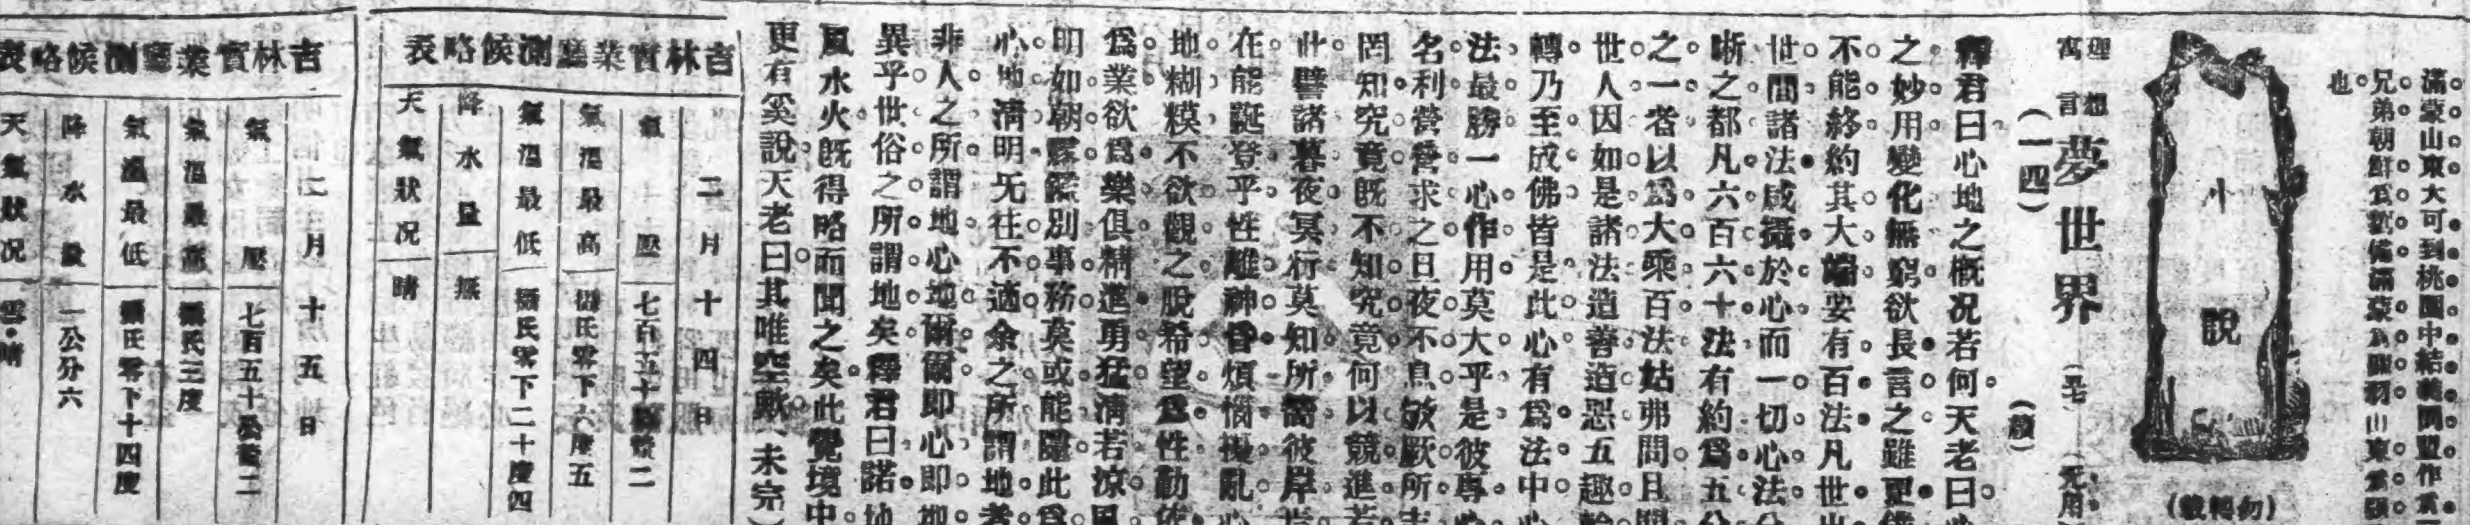 滿蒙山東大可到桃園中結義同盟作爲
兄弟朝鮮爲劉備滿蒙爲關羽山東爲
也
小說
(勿轉載)
理想
寓言
夢世界
(一四)
(續)
釋君曰心地之概况若何天老曰
之妙用變化無窮欲長言之雖更
不能終約其大端要有百法凡世
世間諸法咸攝於心而一切心法
晰之都凡六百六十法有約爲五
之一者以爲大乘百法姑弗問且
世人因如是諸法造善造惡五趣
轉乃至成佛皆是此心有爲法中心
法最勝一心作用莫大乎是彼專
名利營營求之日夜不息敓厥所
罔知究竟既不知究竟何以競進若
此譬諸暮夜冥行莫知所嚮彼岸
在能誕登乎性離神昏煩惱擾亂心
地糊糢不欲觀之脫希望爲性勤
爲業欲爲樂俱精進勇猛淸若凉風
明如朝露鑑別事務莫或能隨此爲
心地淸明旡往不適余之所謂地者
非人之所謂地心地爾爾即心即地
異乎世俗之所謂地矣釋君曰諾地
風水火旣得略而聞之矣此覺境中
更有奚說天老曰其唯空歟(未完)
吉林實業廳測候略表
二月十四日
氣壓 七百五十
氣溫最高 攝氏零下六度五
氣溫最低 攝氏零下二十度四
降水量 無
天氣狀况 晴
吉林實業廳測候略表
二月十五日
氣壓 七百五十
氣溫最高 攝氏三度
氣溫最低 攝氏零下十四度
降水量 一公分六
天氣狀况 雲晴